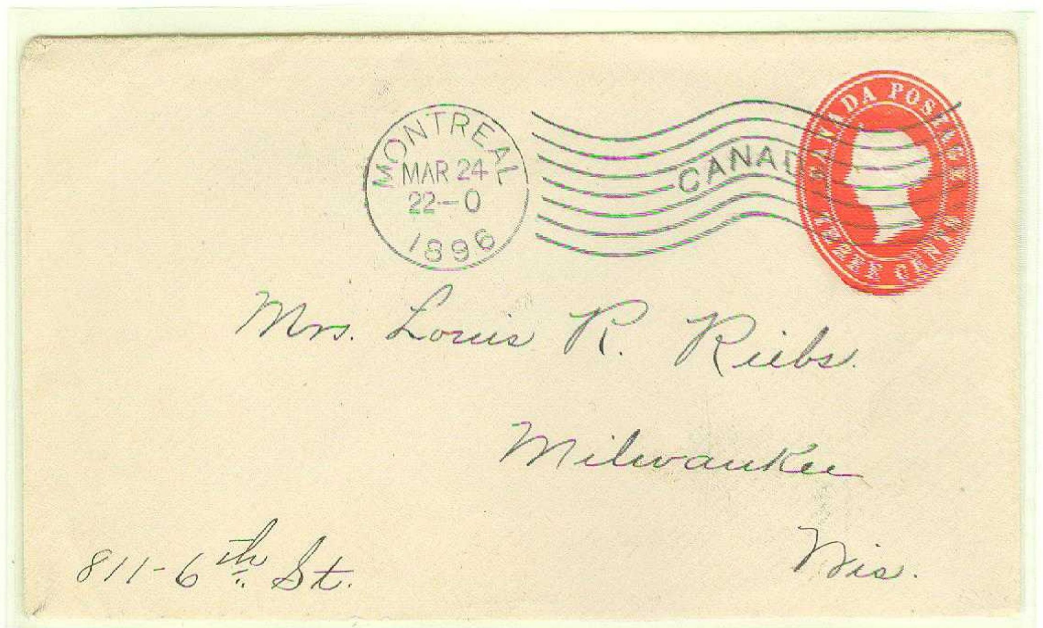 MONTREAL
MAR 24
22-0
1896
CANAD
CANADA POSTAGE
THREE CENTS
Mrs. Louis R. Riebs.
Milwaukee
Wis.
811-6th St.